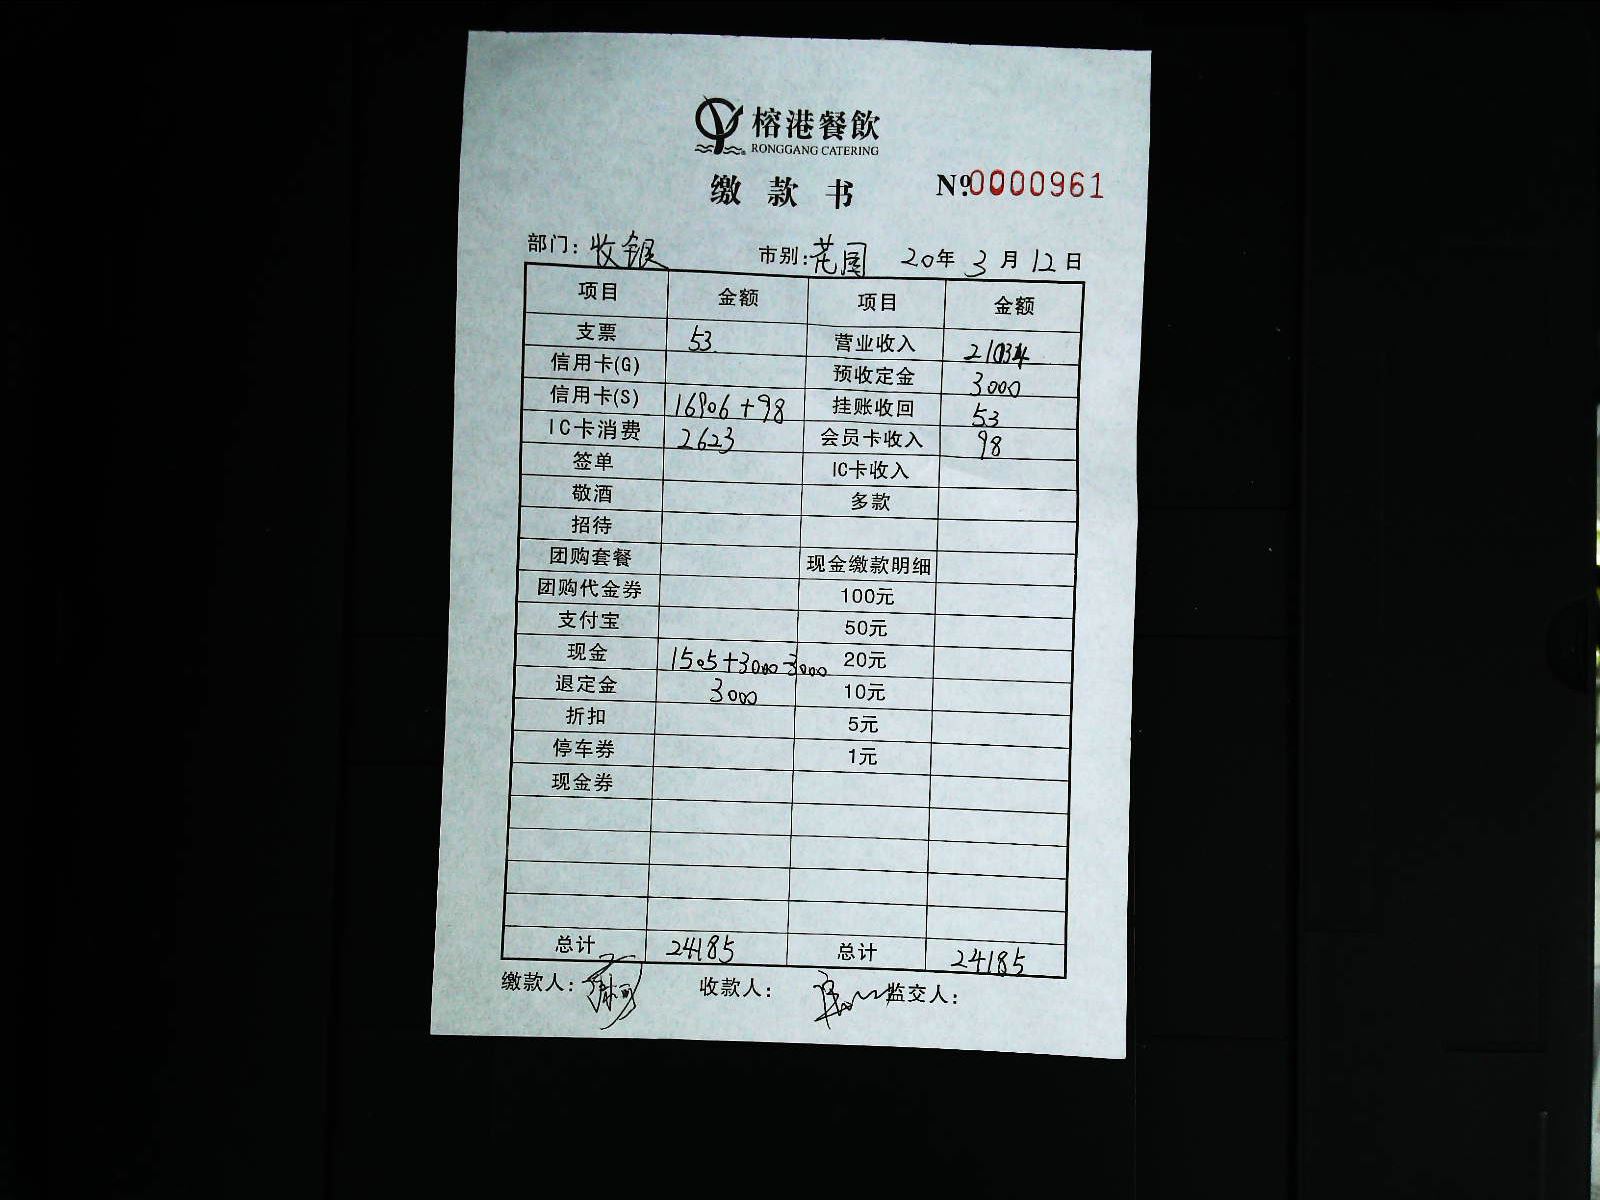 榕港餐飲
RONGGANG CATERING
缴款书 №0000961
部门: 收银 市别: 花园 20年 3月 12日
项目 金额 项目 金额
支票 53 营业收入 21034
信用卡(G) 预收定金 3000
信用卡(S) 16906+98 挂账收回 53
IC卡消费 2623 会员卡收入 98
签单 IC卡收入
敬酒 多款
招待
团购套餐 现金缴款明细
团购代金券 100元
支付宝 50元
现金 1505+3000-3000 20元
退定金 3000 10元
折扣 5元
停车券 1元
现金券
总计 24185 总计 24185
缴款人: 收款人: 监交人: